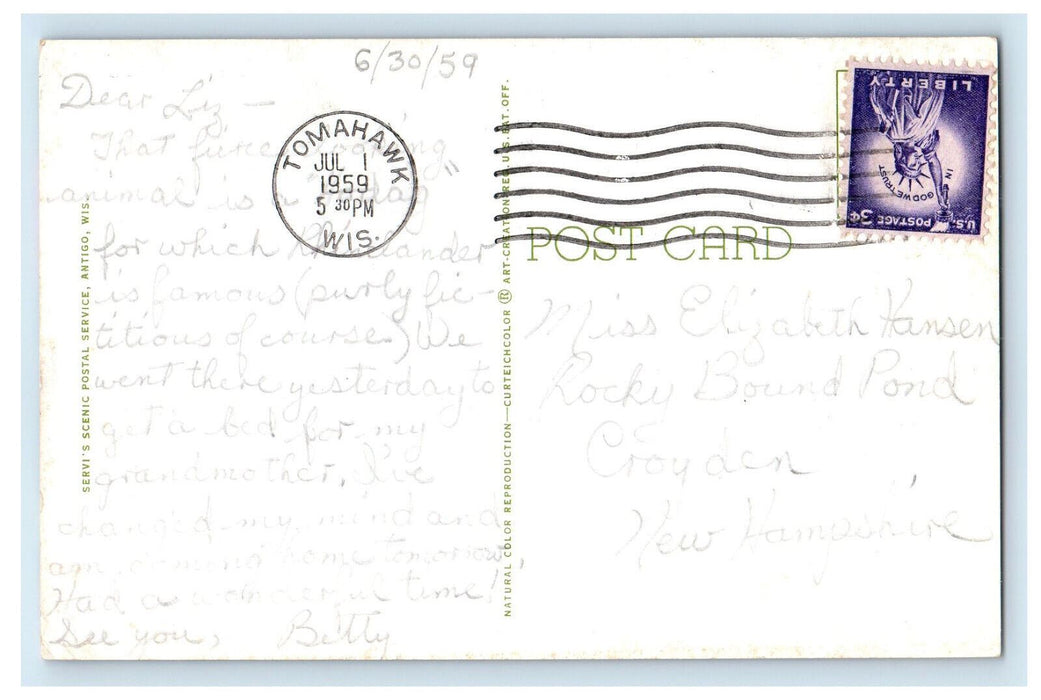 6/30/59
Dear Liz —
That fierce looking
animal is a Hodag
for which Rhinelander
is famous (purly fic-
titious of course.) We
went there yesterday to
get a bed for my
grandmother. I've
changed my mind and
am coming home tomorrow,
Had a wonderful time!
See you, Betty
SERVI'S SCENIC POSTAL SERVICE, ANTIGO, WIS.
TOMAHAWK
JUL 1
1959
5 30 PM
WIS.
NATURAL COLOR REPRODUCTION—CURTEICHCOLOR ® ART-CREATION REG. U.S. PAT. OFF.
POST CARD
U.S. POSTAGE 3¢
IN GOD WE TRUST
LIBERTY
Miss Elizabeth Hansen
Rocky Bound Pond
Croyden,
New Hampshire